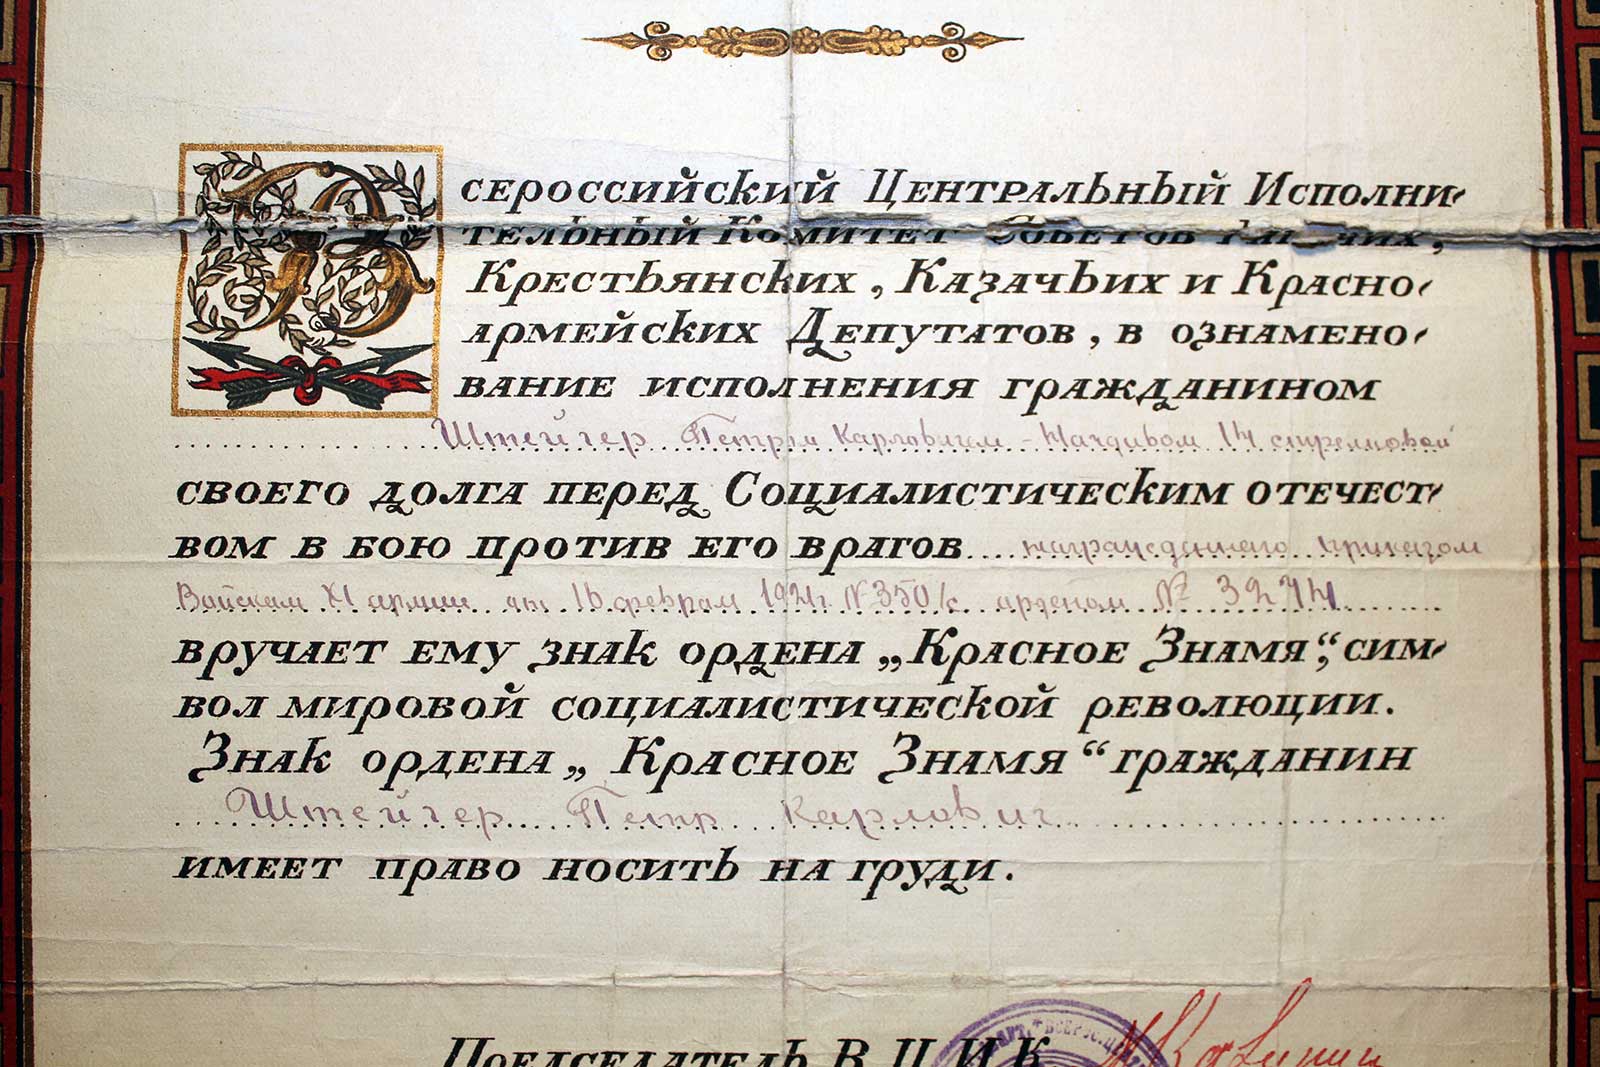 Всероссийский Центральный Исполни-
тельный Комитет Советов Рабочих,
Крестьянских, Казачьих и Красно-
армейских Депутатов, в ознамено-
вание исполнения гражданином
Штейгер Петром Карловичем - Начдивом 14 стрелковой
своего долга перед Социалистическим отечест-
вом в бою против его врагов награжденного приказом
Войскам XI армии от 16 феврам 1921г №350/к орденом №
вручает ему знак ордена „Красное Знамя“, сим-
вол мировой социалистической революции.
Знак ордена „Красное Знамя“ гражданин
Штейгер Петр Карлович
имеет право носить на груди.
Председатель В Ц И К
М Калинин